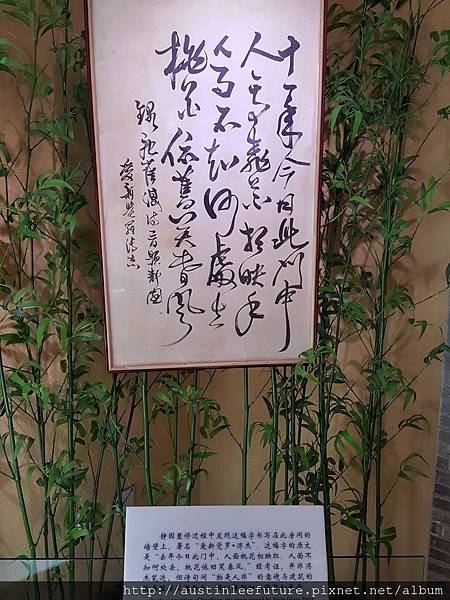 今日此门中
人面桃花相映
人面不知何處去
桃花依舊笑春風
愛新覺羅溥杰
静园整修过程中发现这幅字书写在此房间的
墙壁上，署名“爱新觉罗•溥杰”。这幅字的原文
是“去年今日此门中，人面桃花相映红，人面不
知何处去，桃花依旧笑春风。”经考证，并非溥
杰笔迹，但诗句间“物是人非”的意境与建筑的
http://austinleefuture.pixnet.net/album